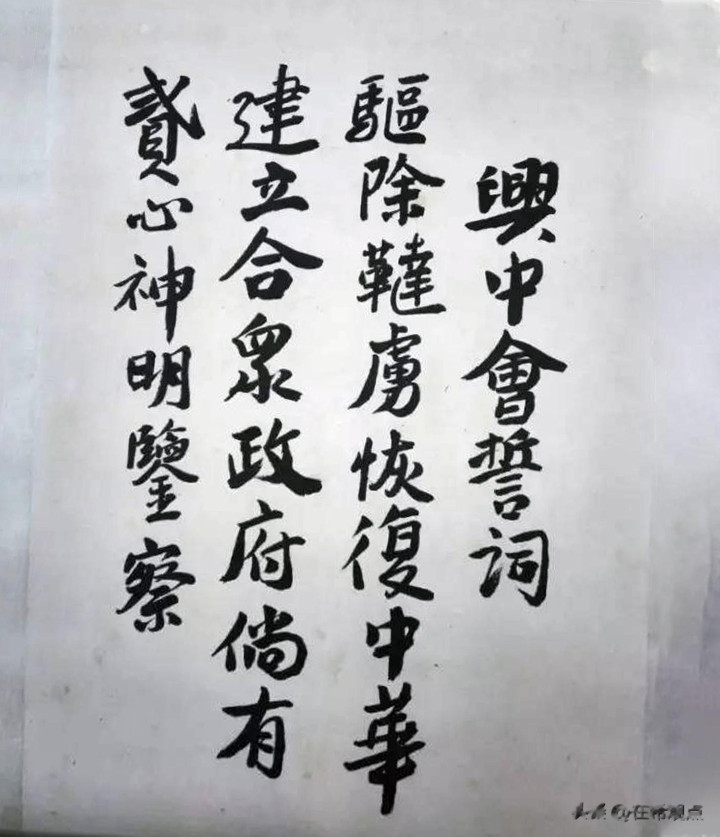 興中會誓詞
驅除韃虜恢復中華
建立合衆政府倘有
貳心神明鑒察